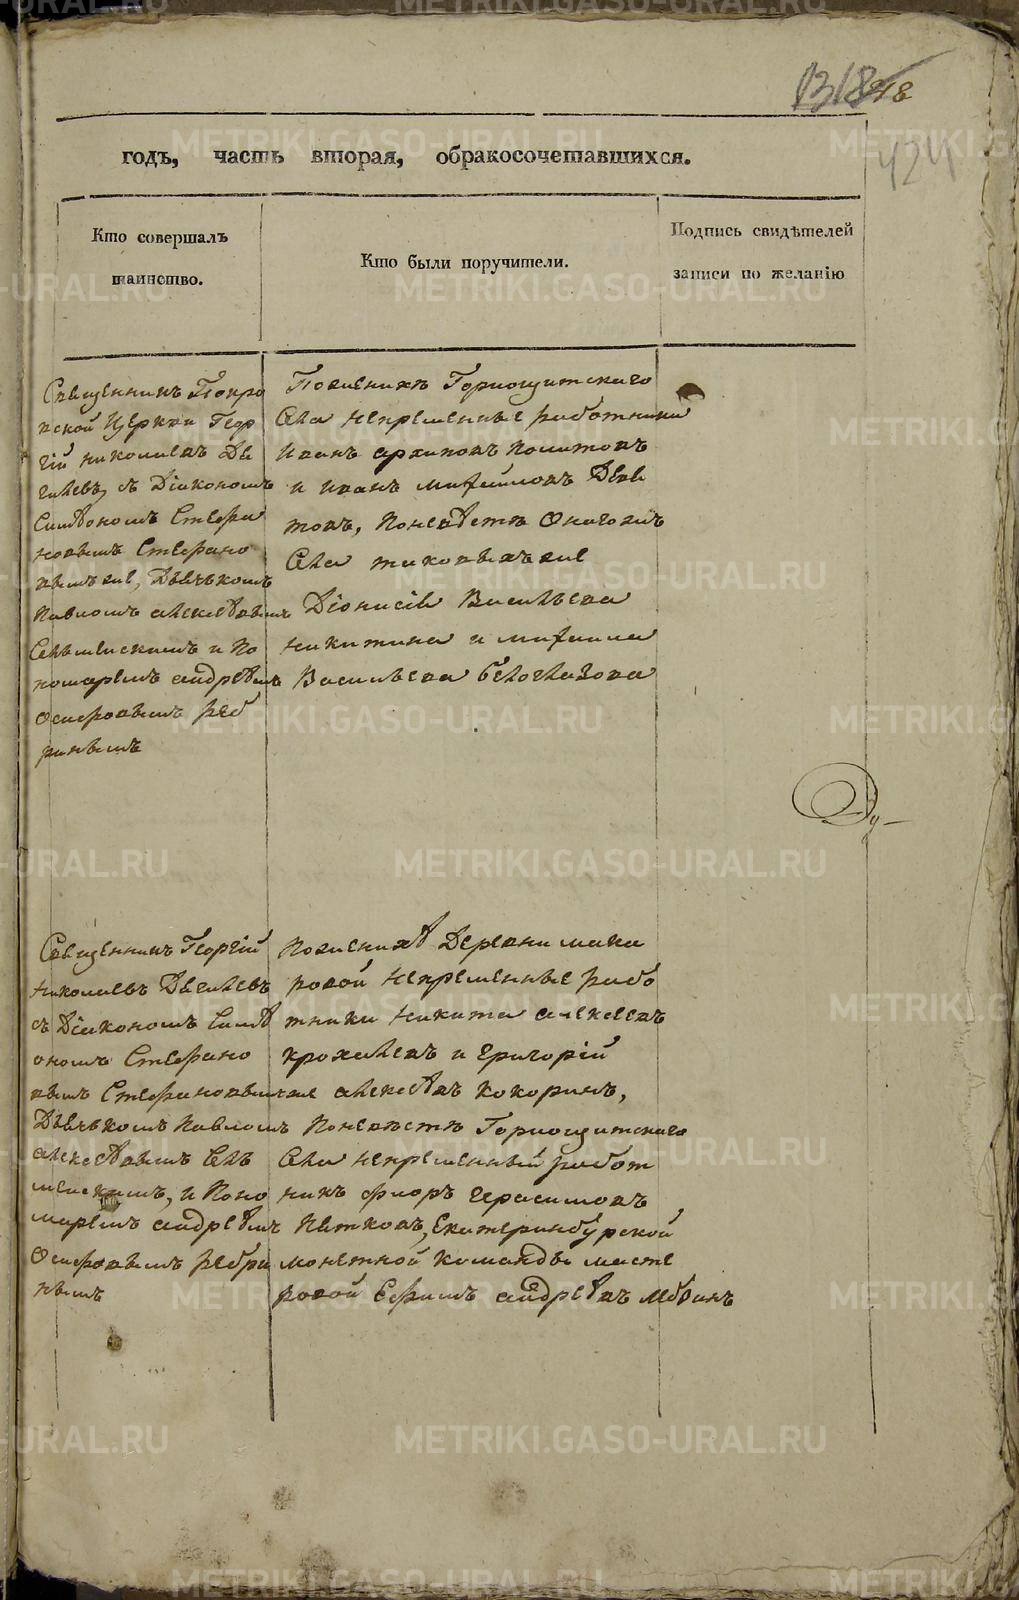 318
218
424
годъ, часть вторая, обракосочетавшихся.
Кто совершалъ
таинство.
Кто были поручители.
Подпись свидѣтелей
записи по желанію
Священникъ Покро
вской Церкви Геор
гій Николаевъ Дя
гилевъ, съ Діакономъ
Симѣономъ Стефа
новымъ Стефано
вымъ же, Дьячькомъ
Павломъ Алексѣевымъ
Сельменскимъ и По
номаремъ Андрѣемъ
Осиповымъ Реб
ринымъ
Поженихѣ Горнощитскаго
Села непременные работники
Иванъ Архиповъ Политовъ
и Иванъ Михайловъ Девя
товъ, Поневѣстѣ Онагожъ
Села таковыхъже
Діонисій Васильева
Никитина и Михаила
Васильева Бѣлоглазова
Священникъ Георгій
Николаевъ Дягилевъ
съ Діакономъ Симѣ
ономъ Стефано
вымъ Стефановымъже
Дьячькомъ Павломъ
Алексѣевымъ Сель
менскимъ, и Поно
маремъ Андрѣемъ
Осиповымъ Ребри
нымъ
Поженихѣ Деревни Мака
ровой непременные рабо
тники Никита Алексеевъ
Крохалевъ и Григорій
Алексѣевъ Кокоринъ,
Поневѣстѣ Горнощитскаго
Села непременный работ
никъ Фиоръ Герасимовъ
Пятковъ, Екатеринбурской
монетной команды масте
ровой Ефимъ Андрѣевъ
METRIKI.GASO-URAL.RU